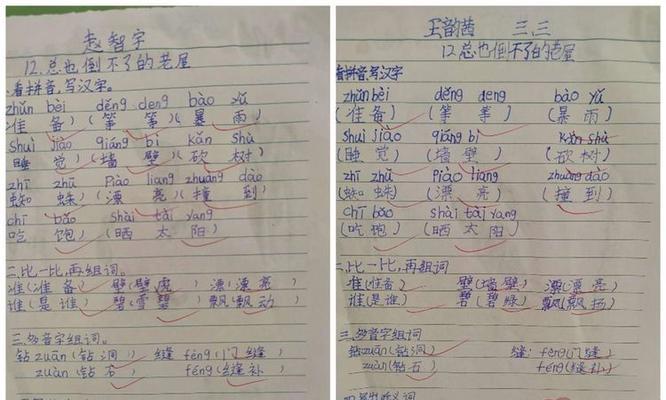 赵智宇
12.总也倒不了的老屋
一.看拼音,写汉字。
zhǔn bèi děng deng bào yǔ
(准 备)(等 等)(暴 雨)
shuì jiào qiáng bì kǎn shù
(睡 觉)(墙 壁)(砍 树)
zhī zhū piào liang zhuàng dào
蜘 蛛)(漂 亮)(撞 到)
chī bǎo shài tài yang
吃 饱)(晒 太 阳)
二.比一比,再组词。
准(准备) 壁(壁虎) 漂(漂亮)
谁(是谁) 碧( 碧) 飘(飘动)
三.多音字组词。
钻zuān(钻洞) 缝féng(门缝)
zuàn(钻石) fèng(缝补)
王韵茜 三.三
12.总也倒不了的老屋
看拼音,写汉字
zhǔn bèi děng deng bào yǔ
(准备)(等等)(暴雨)
shuì jiào qiáng bì kǎn shù
(睡觉)(墙壁)(砍树)
zhī zhū piào liang zhuàng dào
(蜘蛛)(漂亮)(撞到)
chī bǎo shài tài yang
(吃饱)(晒太阳)
二.比一比,再组词
准(准备) 壁(墙壁) 漂(漂亮)
谁(是谁) 碧(碧绿) 飘(飘扬)
三.多音字组词
钻zuān(钻洞) 缝:fèng(门缝)
zuàn(钻石) féng(缝补)